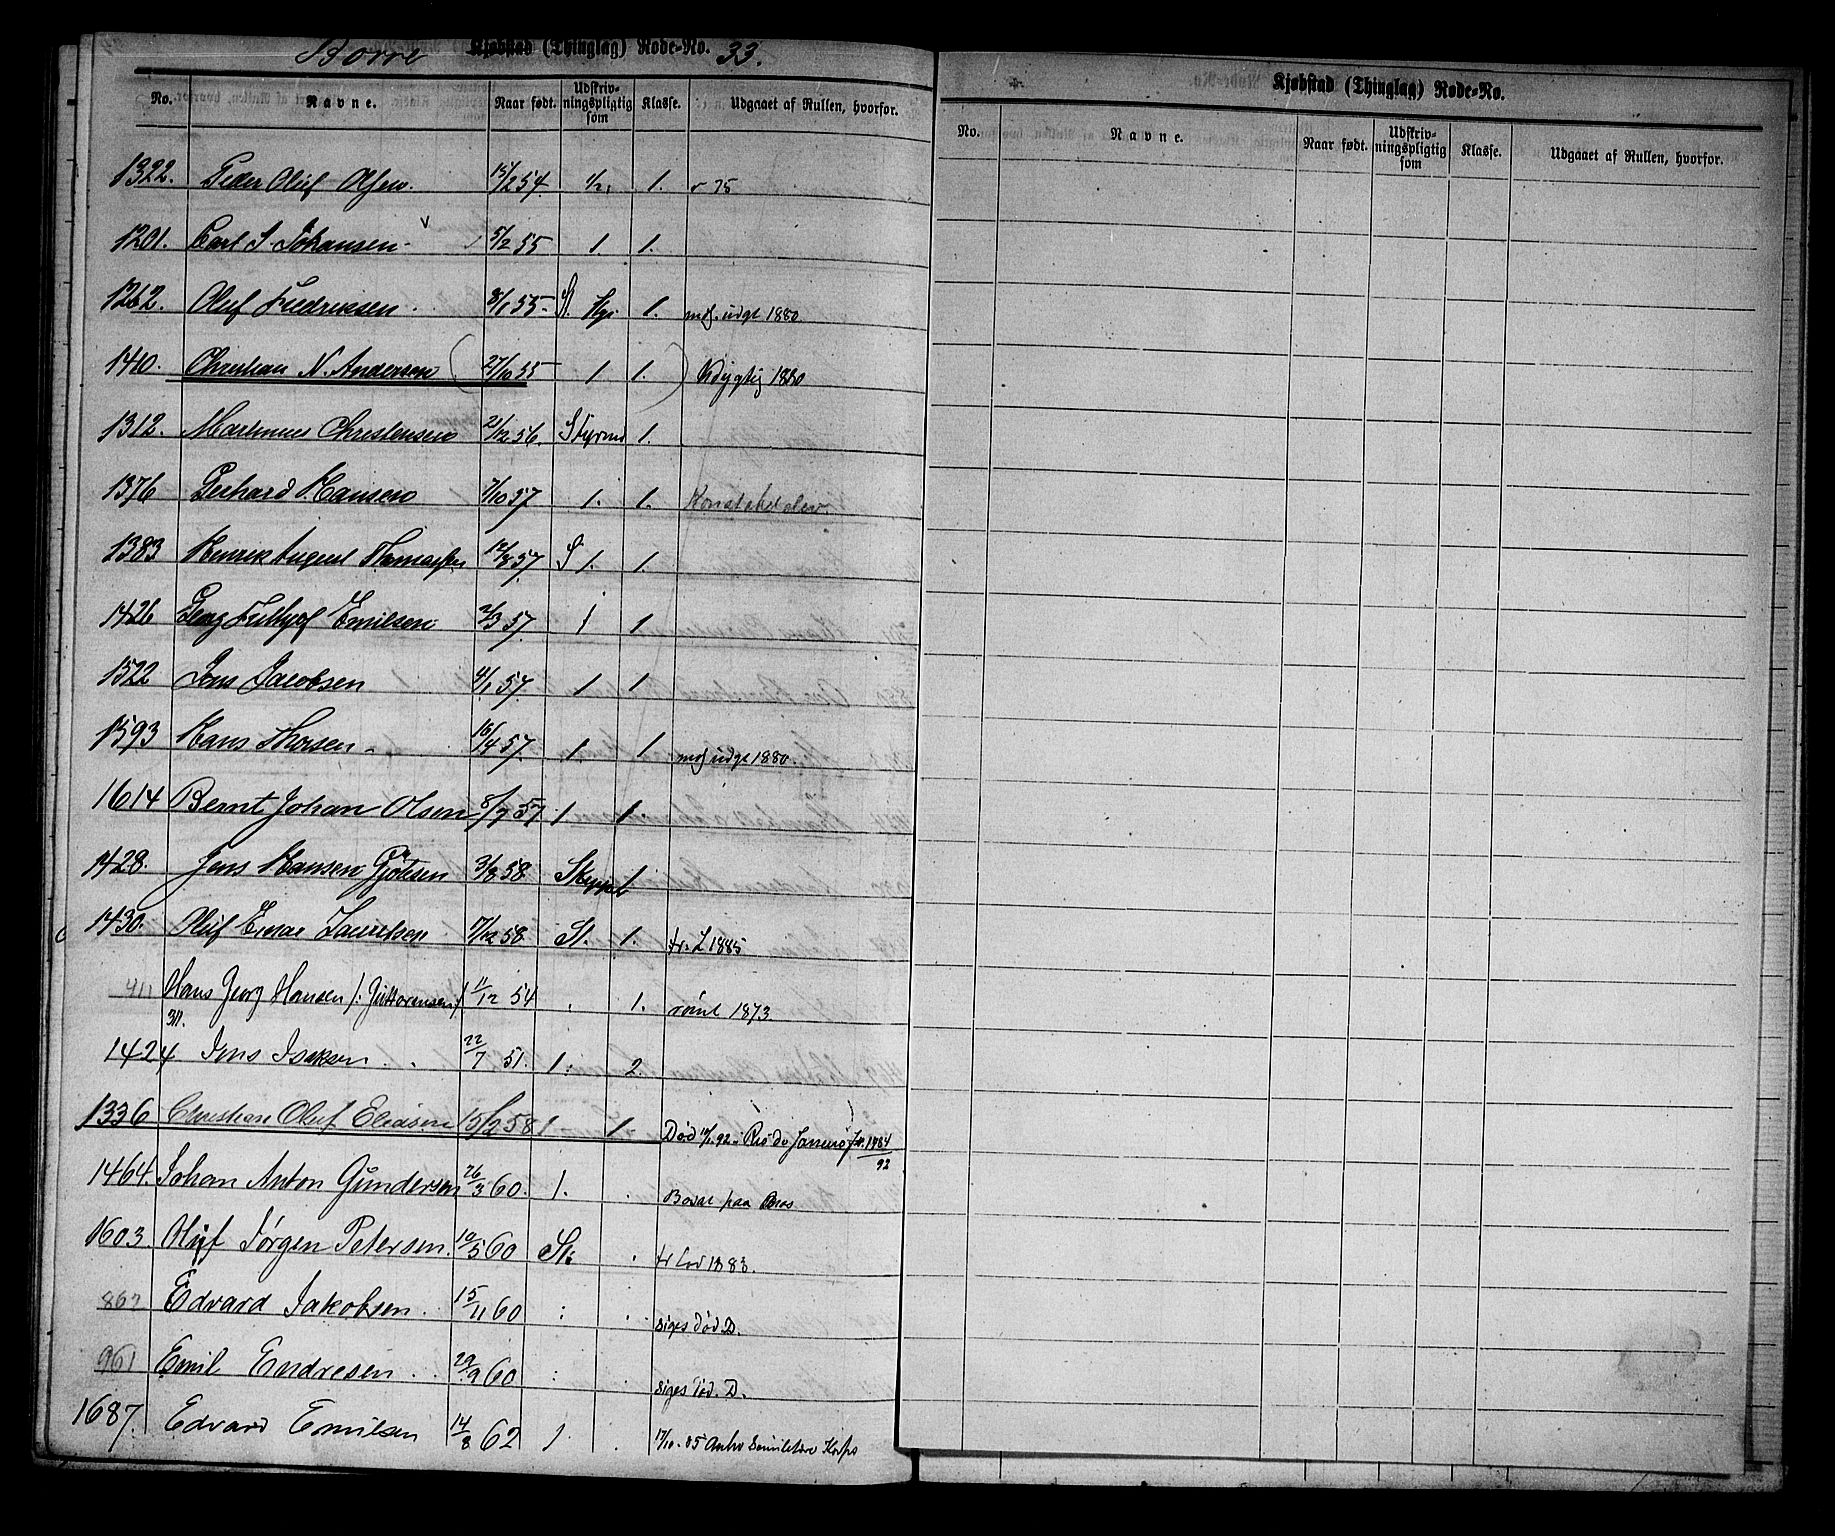 Borre Kjøbstad (Thinglag) Rode-No. 33.
No. Navne. Naar født. Udskrivningspligtig som Klasse. Udgaaet af Rullen, hvorfor.
1322. Peder Oluf Olsen. 15/2 54 1/2, 1. r 75
1201. Carl S. Johansen 5/2 55 1. 1.
1262. Oluf Fredriksen. 8/1 55 1. mdj. udgt 1880.
1410. Christian N. Andersen (27/10 55 1 1.) Udygtig 1880
1312. Martinius Christensen 21/12 56. Styrmd 1.
1376 Gerhard Hansen 7/10 57 1. 1. Konstabelelev.
1383 Henrik August Thomassen 12/8 57 S 1. 1.
1426 Georg Fridtjof Emilsen 2/3 57 1 1.
1522 Jens Jacobsen 4/1 57. 1 1.
1593 Hans Thorsen 16/4 57. 1. 1. mdj udgt 1880.
1614 Bernt Johan Olsen 8/7 57 1. 1
1428. Jens Hansen Gjötesen 3/8 58 Skippb 1.
1430. Oluf Einar Lauritsen 17/12 58 St. 1. tr. L 1885
411 Hans Georg Hansen /: Guttorensen/ 11/12 54 . 1. römt 1873
311.
1424 Jens Isaksen 22/7 51. 1: 2.
1336 Christian Oluf Eliasen 15/2 58 1 1. Död 11/1 92 - Rio de Janeiro Jr. 1484/92
1464. Johan Anton Gundersen 26/3 60. 1. . Bosat paa
1603. Oluf Jørgen Petersen. 10/5 60 St: . tr Lod 1883.
867 Edvard Jakobsen. 15/11 60 : . siges død D.
961 Emil Endresen 29/9 60 : . siges død. D.
1687. Edvard Emilsen 14/8 62 1 . 17/10 - 85 Korps
Kjøbstad (Thinglag) Rode-No.
No. Navne. Naar født. Udskrivningspligtig som Klasse. Udgaaet af Rullen, hvorfor.